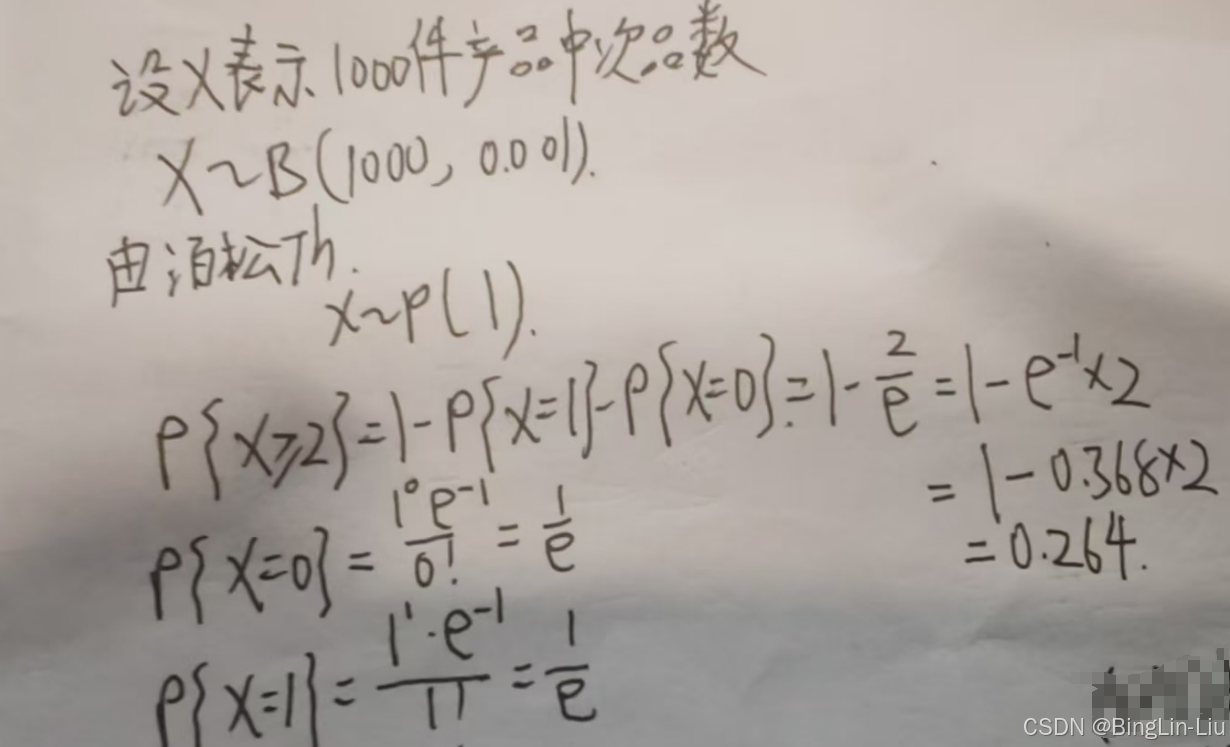 设X表示1000件产品中次品数
X~B(1000, 0.001).
由泊松Th.
X~P(1).
P{X≥2}=1-P{X=1}-P{X=0}.=1-2/e=1-e⁻¹×2
=1-0.368×2
=0.264.
P{X=0}=1⁰e⁻¹/0!=1/e
P{X=1}=1¹·e⁻¹/1!=1/e
CSDN @BingLin-Liu